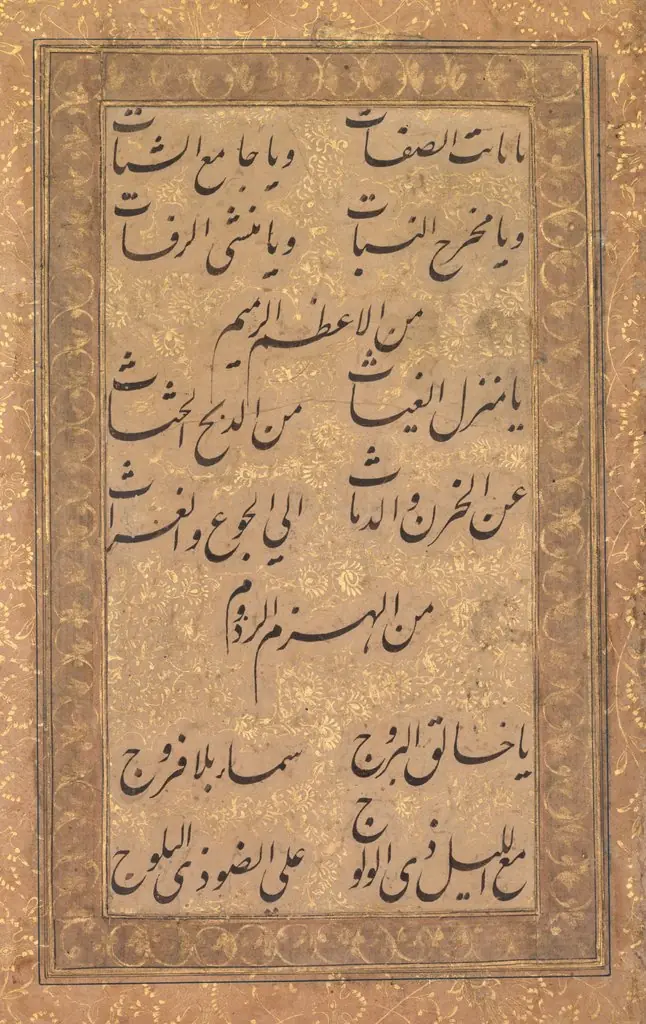 يا ثابت الصفات ويا جامع الشتات
ويا مخرج النبات ويا منشى الرفات
من الاعظم الرميم
يا منزل الغياث من الدلج الحثاث
عن الخزن والدماث الي الجوع والغراث
من الهزم الرذوم
يا خالق البروج سماء بلا فروج
مع الليل ذى الولوج علي الضو ذى البلوج